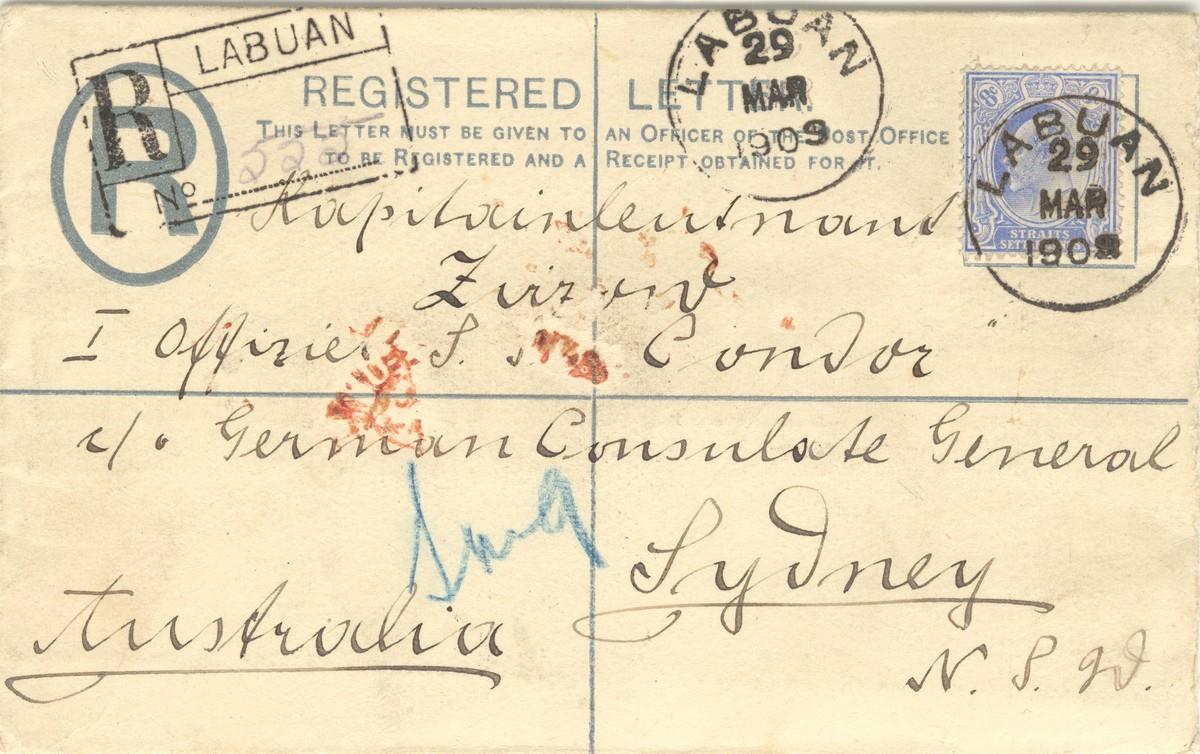 R LABUAN
No 225
R
REGISTERED LETTER.
THIS LETTER MUST BE GIVEN TO AN OFFICER OF THE POST OFFICE
TO BE REGISTERED AND A RECEIPT OBTAINED FOR IT.
LABUAN
29
MAR
1909
8c
STRAITS
LABUAN
29
MAR
1909
Kapitainleutnant
I Offizier S. "Condor"
c/o German Consulate General
Sydney
Australia
N. S. W.